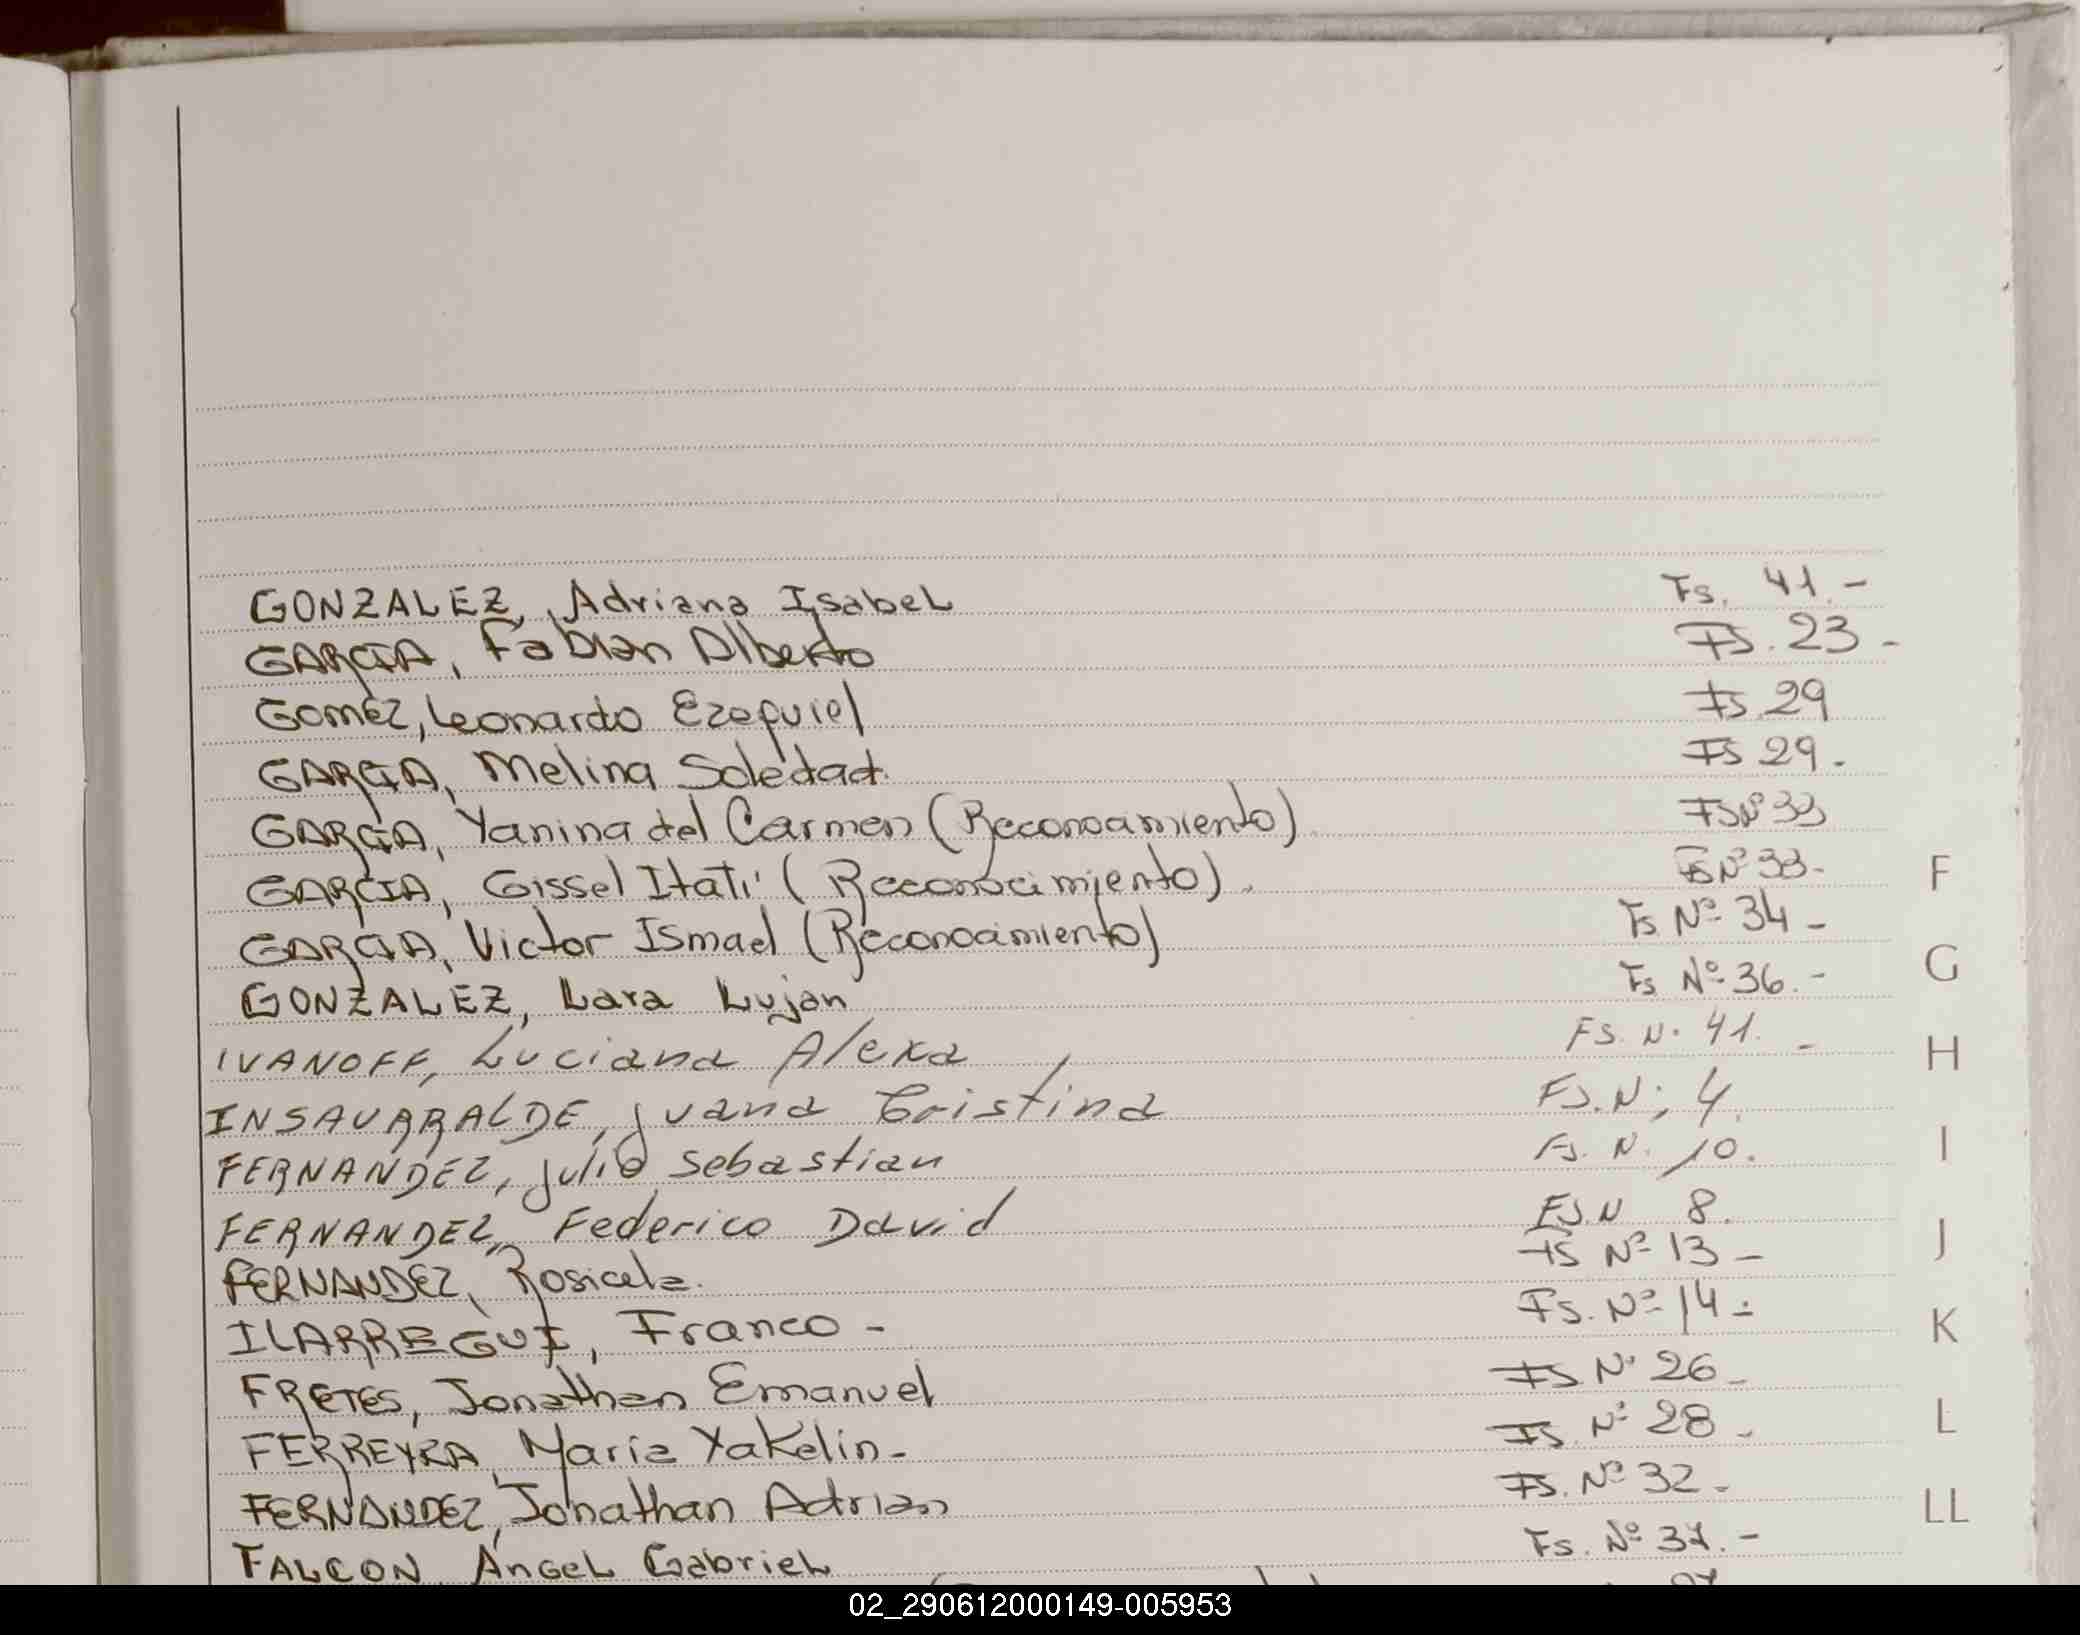 GONZALEZ, Adriana Isabel Fs. 41.-
GARCIA, Fabian Alberto Fs. 23-
Gomez, Leonardo Ezequiel Fs 29
GARCIA, Melina Soledad. Fs 29.
GARCIA, Yanina del Carmen (Reconocimiento) Fs Nº 33
GARCIA, Gissel Itatí (Reconocimiento). Fs Nº 33-
GARCIA, Victor Ismael (Reconocimiento) Fs Nº 34-
GONZALEZ, Lara Lujan Fs Nº 36.-
IVANOFF, Luciana Alexa Fs. N. 41. -
INSAURRALDE, Juana Cristina Fs. N; 4.
FERNANDEZ, Julio Sebastian Fs. N. 10.
FERNANDEZ, Federico David Fs. N 8.
FERNANDEZ, Rosicela. Fs Nº 13-
ILARREGUI, Franco- Fs. Nº 14-
FRETES, Jonathan Emanuel Fs Nº 26-
FERREYRA, Maria Yakelin- Fs. Nº 28-
FERNANDEZ, Jonathan Adrian Fs. Nº 32-
FALCON, Angel Gabriel Fs. Nº 37.-
F
G
H
I
J
K
L
LL
02_290612000149-005953